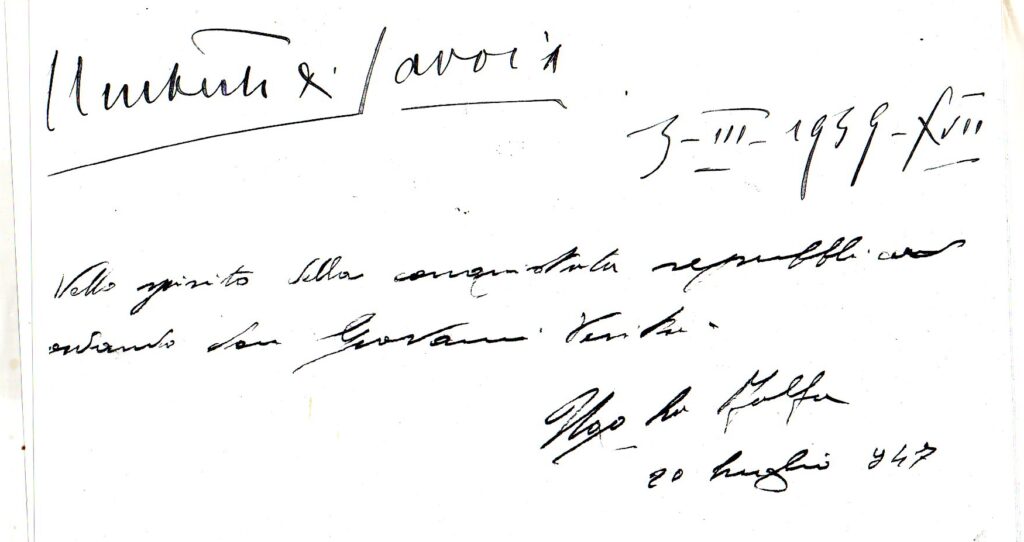 Umberto di Savoia
3-III-1939-XVII
Nello spirito della conquistata repubblica
don Giovanni
Ugo La Malfa
20 luglio 947